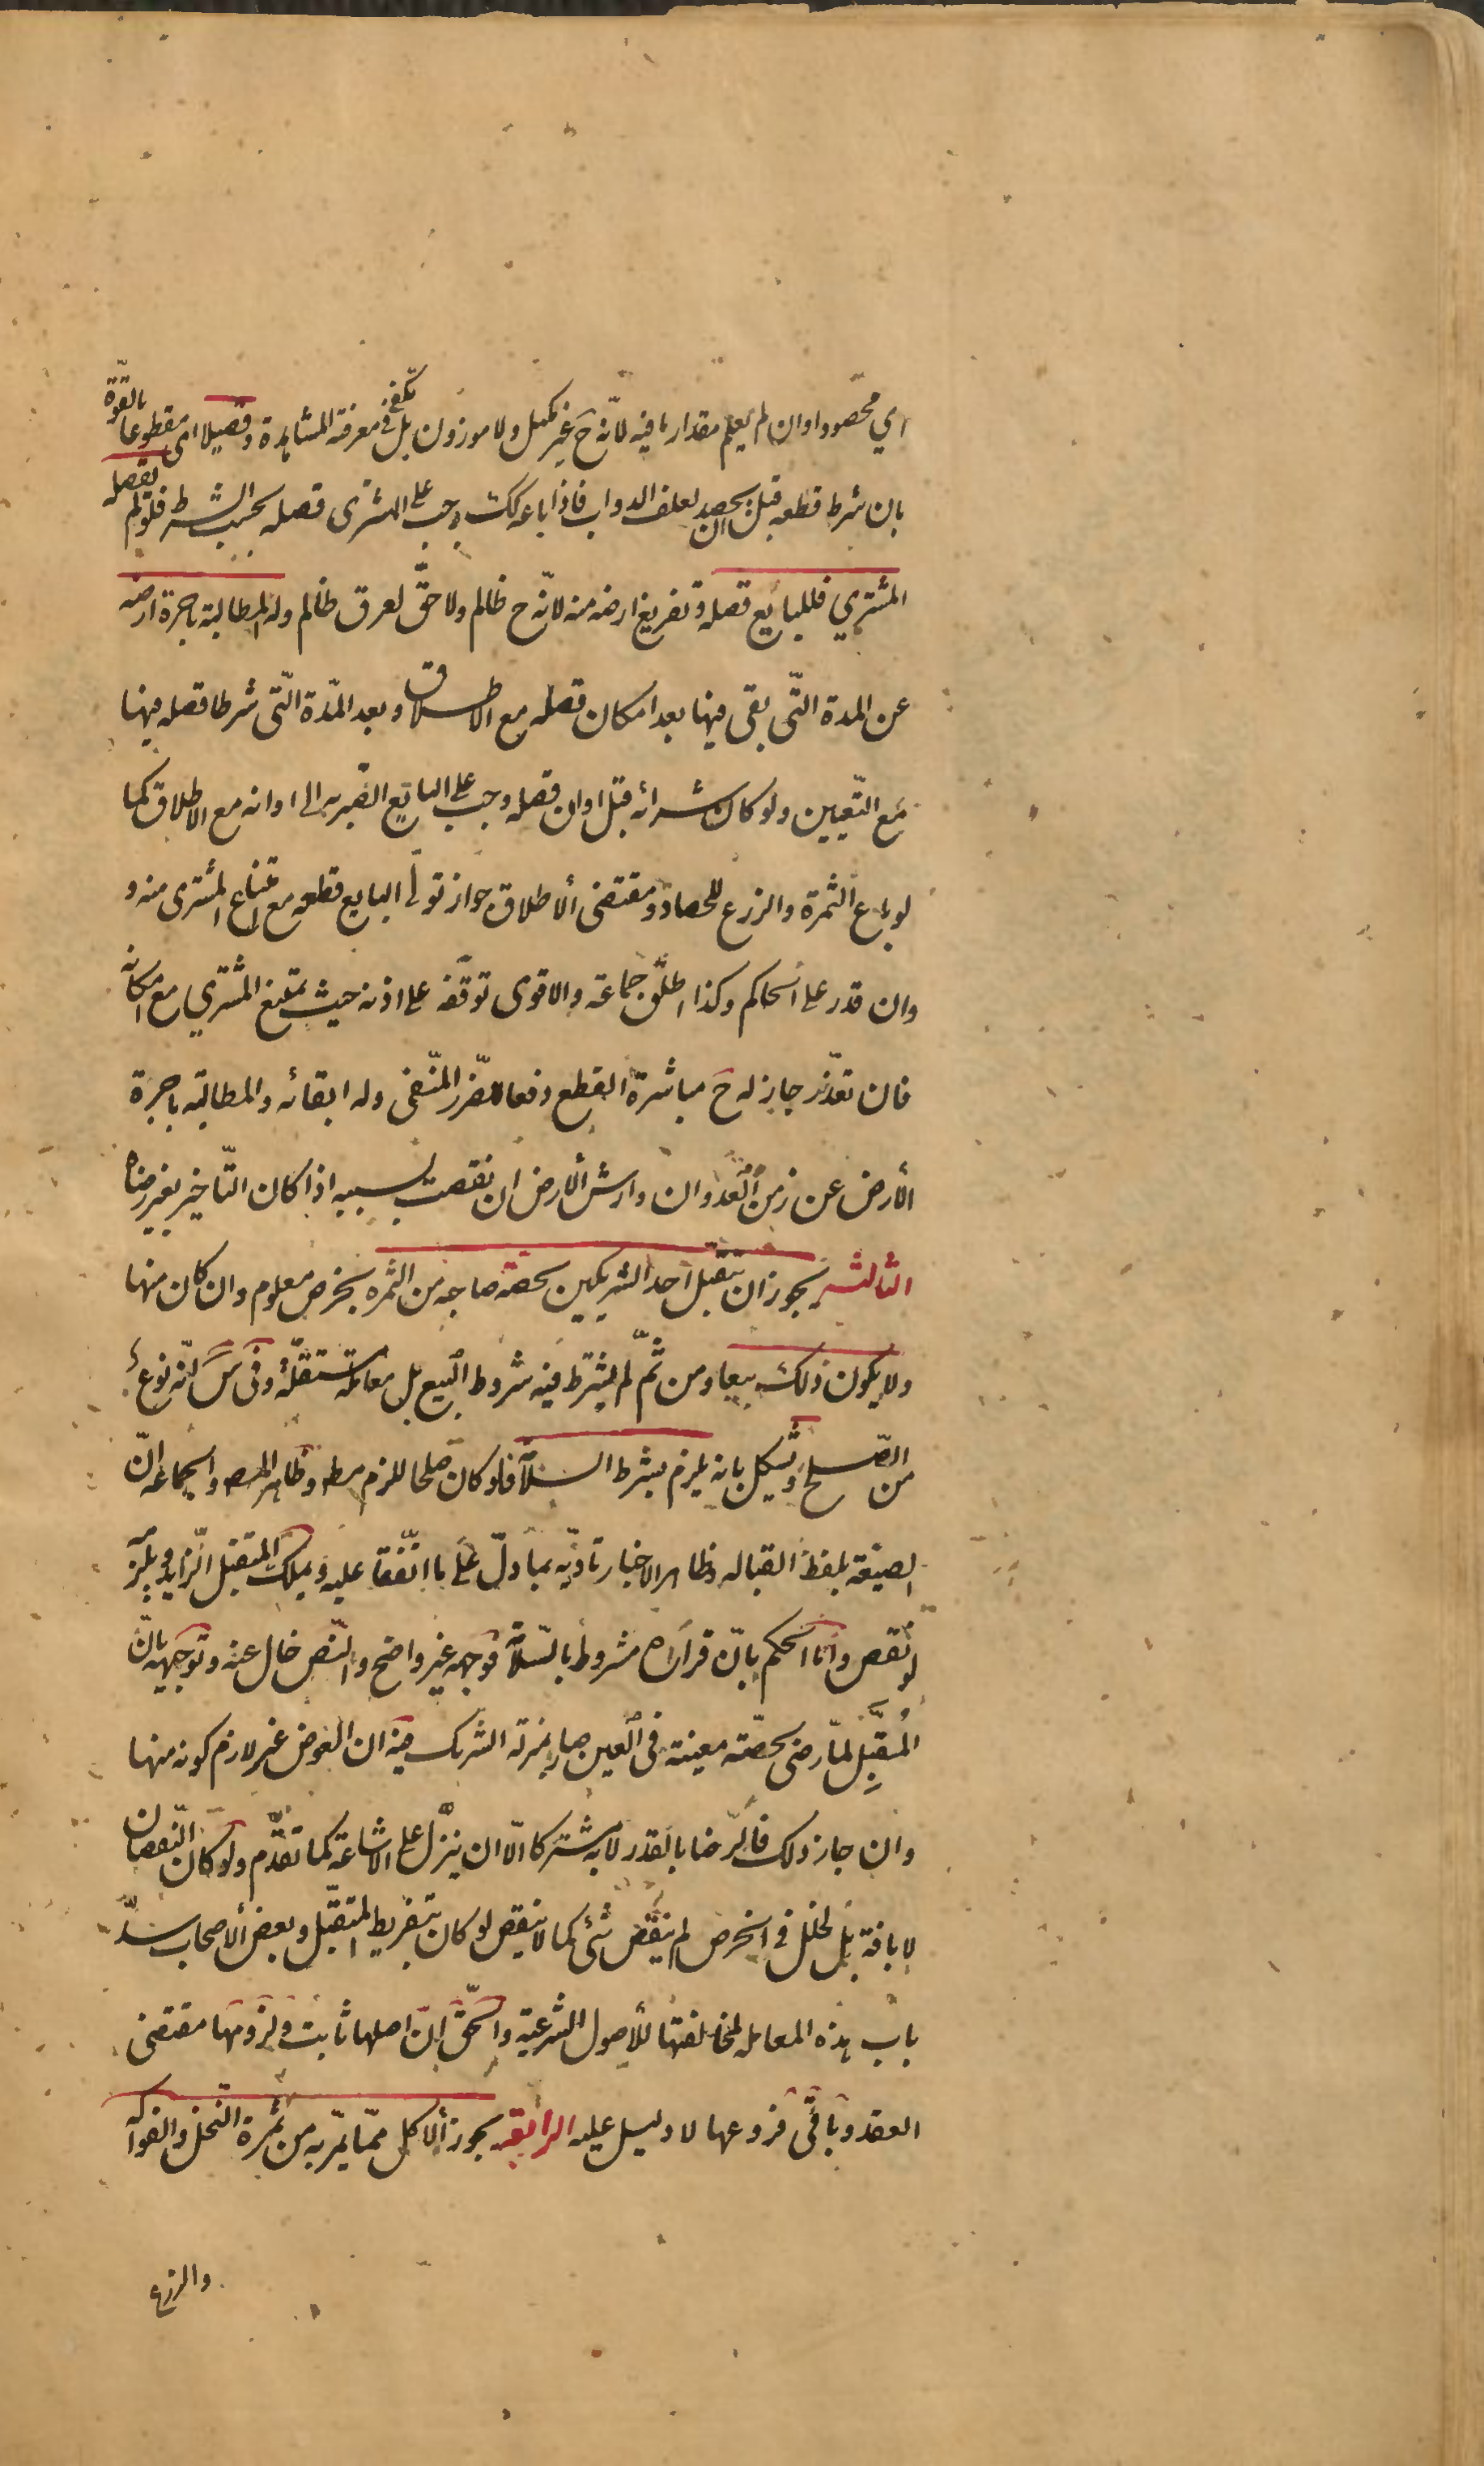 اي محصودا وان لم يعلم مقدار ما فيه لانّه ح غير مكيل ولا موزون بل يكفى فى معرفته المشاهدة وقصيلا اى مقطوعا بالقوّة
بان شرط قطعه قبل ان يحصد لعلف الدواب فاذا باعه كك وجب على المشترى قصله بحسب الشرط فلو لم يقصله
المشتري فللبايع قصله وتفريغ ارضه منه لانّه ح ظالم ولا حقّ لعرق ظالم وله المطالبة باجرة ارضه
عن المدة التّى بقى فيها بعد امكان قصله مع الاطلاق وبعد المدّة التّى شرطا قصله فيها
مع التّعيين ولو كان شرائه قبل اوان قصله وجب على البايع الصّبر به الى اوانه مع الاطلاق كما
لو باع الثمرة والزرع للحصاد ومقتضى الاطلاق جواز تولى البايع قطعه مع امتناع المشترى منه و
وان قدر على الحاكم وكذا اطلق جماعة والاقوى توقّفه على اذنه حيث يمتنع المشتري مع امكانه
فان تعذّر جاز له ح مباشرة القطع دفعا للضّرر المنّفى وله ابقائه والمطالبة باجرة
الأرض عن زمن العدوان وارش الأرض ان نقصت بسببه اذا كان التّاخير بغير رضاه
الثالثه يجوز ان يتقبل احد الشريكين بحصّة صاحبه من الثمره بخرص معلوم وان كان منها
ولا يكون ذلك بيعا ومن ثمّ لم يشترط فيه شروط البيع بل معاملة مستقلّة وفى س انّه نوع
من الصّلح ويشكل بانه يلزم بشرط السلامة فلو كان صلحا للزم مط وظاهر المصـ والجماعة انّ
الصيغة بلفظ القباله وظاهر الاخبار تاديّه بما دلّ على ما اتّفقا عليه ويملك المتقبل الزّايد ويلزم
لو نقص وامّا الحكم بانّ قراره مشروط بالسّلامة فوجهه غير واضح والنّص خال عنه وتوجيهه بانّ
المُتقبّل لمّا رضى بحصّة معينة فى العين صار بمنزلة الشريك فيه ان العوض غير لازم كونه منها
وان جاز ذلك فالرّضا بالقدر لا به مشتركا الّا ان ينزّل على الاشاعة كما تقدّم ولو كان النّقصان
لا بافة بل لخلل فى الخرص لم ينقص شئ كما لا ينقص لو كان بتفريط المتقبّل وبعض الأصحاب سدّ
باب هذه المعامله لمخالفتها للأصول الشرعيّة والحقّ انّ اصلها ثابت ولزومها مقتضى
العقد وباقى فروعها لا دليل عليه الرابعه يجوز الأكل ممّا يمّر به من ثمرة النّخل والفواكه
والزرع